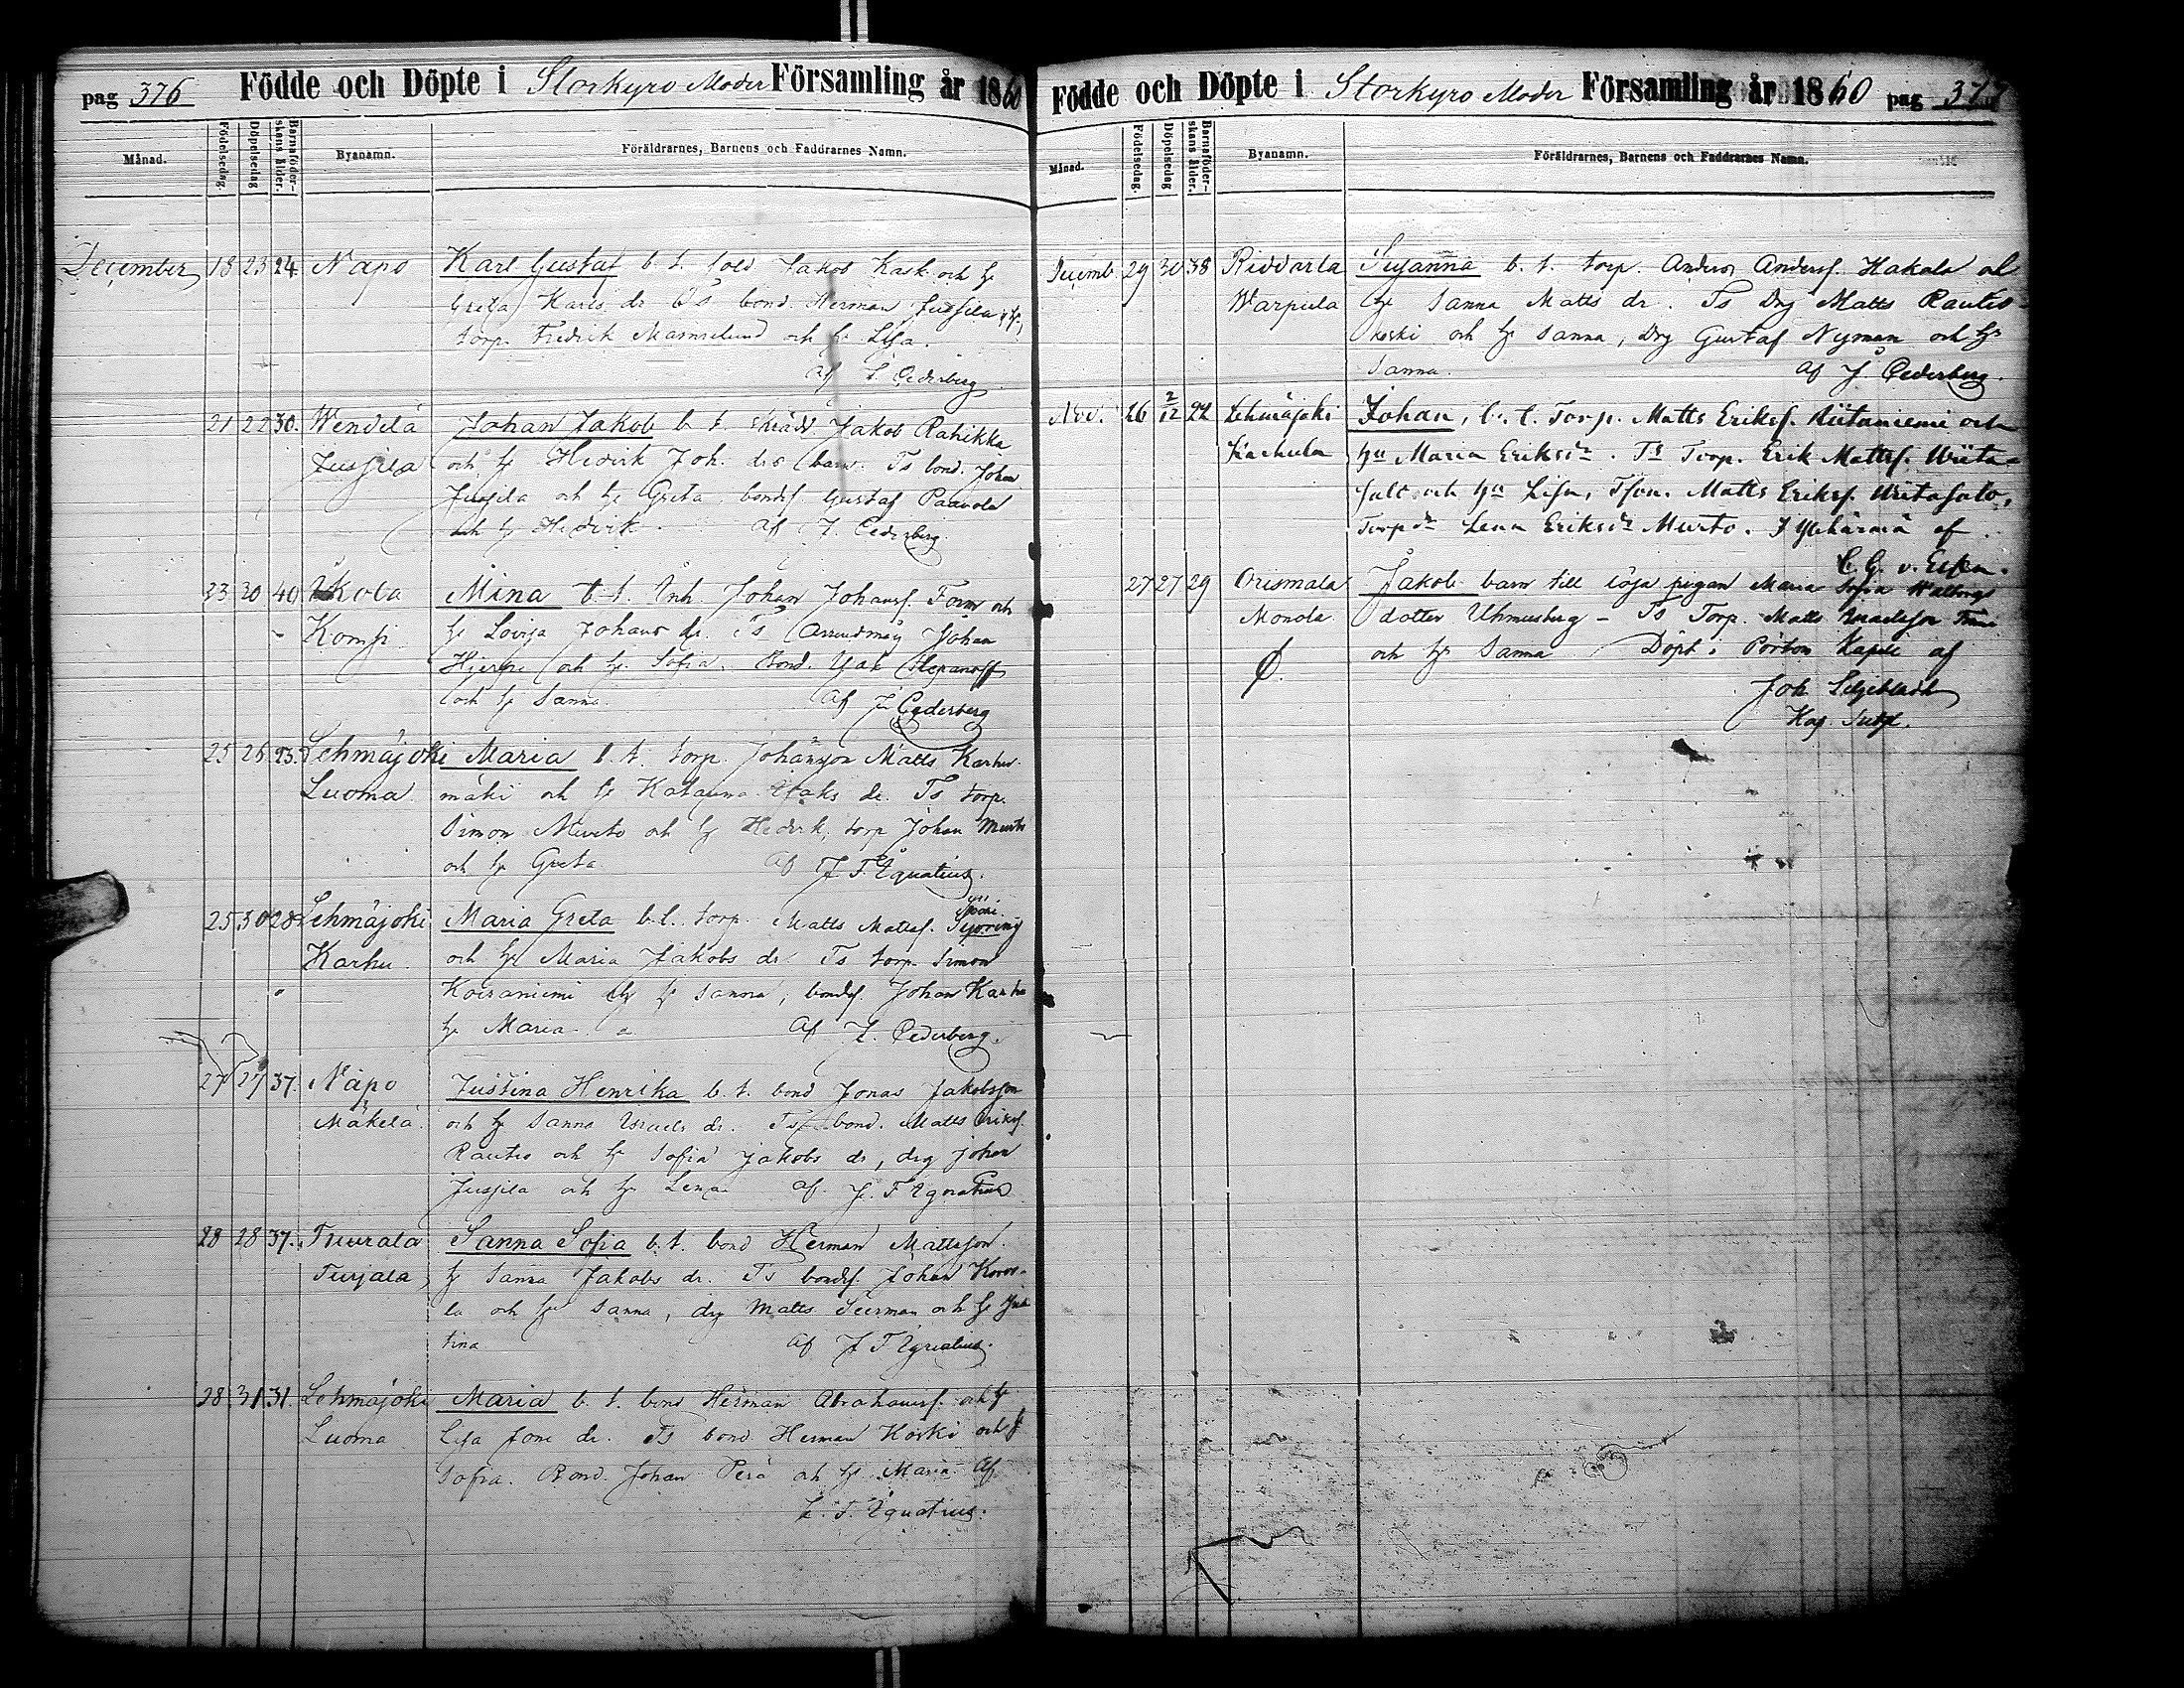 pag 376 Födde och Döpte i Storkyro Moder Församling år 1860
Månad. Födelsedag. Döpelsedag Barnaföderskans ålder. Byanamn. Föräldrarnes, Barnens och Faddrarnes Namn.
December 18 23 24 Napo Karl Gustaf b. t. sold Jakob Kask och h.
Greta Karls dr Ts bond. Herman Jussila
torp. Fredrik Marmelund och h. Lisa.
Af J. Cederberg
21 22 30. Wendelä Johan Jakob b. t. Jakob Rahikka
Jussila och h Hedvik Joh. dr Ts bond. Johan
Jussila och h Greta bonds Gustaf Paavola
och h Hedvik. Af J. Cederberg.
23 30 40 Ikola Mina b. t. Inh. Johan Johanss. Form och
Kompi. h Lovisa Johans dr. Ts Johan
Hjerpe och h. Sofia. Bond. Isak Stepanoff
och h Sanna. Af J Cederberg
25 26 23. Lehmäjoki Maria b. t. torp. Johansson Matts Karhu-
Luoma mäki och h Katarina Isaks dr. Ts torp.
Simon Murto och h Hedvik, torp Johan Murto
och h Greta Af J. F. Ignatius.
25 30 28 Lehmäjoki Maria Greta b. t. torp. Matts Mattss.
Karhu. och h Maria Jakobs dr. Ts torp. Simon
Koiraniemi h Sanna, bonds. Johan Karhu
h Maria. Af J. Cederberg.
27 27 37. Napo Justina Henrika b. t. bond Jonas Jakobsson
Mäkelä och h Sanna Israels dr. Ts bond. Matts Erikss.
Rautio och h Sofia Jakobs dr, drg Johan
Jussila och h Lena Af. J. F Ignatius
28 28 37. Tuurala Sanna Sofia b. t. bond Herman Mattsson.
Turjala h Sanna Jakobs dr. Ts bonds. Johan Koros-
la och h Sanna, drg Matts och h Jus
tina Af J F Ignatius.
28 31 31. Lehmäjoki Maria b. t. bond Herman Abrahamss. och h
Luoma Lisa dr. Ts bond. Herman Koski och h
Sofia. Bond. Johan Perä och h Maria Af
J. F. Ignatius.
Födde och Döpte i Storkyro Moder Församling år 1860 pag 377
Månad. Födelsedag. Döpelsedag Barnaföderskans ålder. Byanamn. Föräldrarnes, Barnens och Faddrarnes Namn.
Decemb. 29 30 38 Riddarla Susanna b. t. torp. Anders Anderss. Hakala och
Warpula h Sanna Matts dr. Ts Drg Matts Rautio-
koski och h Sanna, Drg Gustaf Nyman och h
Sanna. Af J. Cederberg.
Nov. 26 2/12 22 Lehmäjoki Johan, b. t. Torp. Matts Erikss. och
hu Maria Eriksdr. Ts Torp. Erik Mattss. Wiita-
salo och hu Lisa, Matts Erikss. Wiitasalo,
Torpdr Lena Eriksdr Murto. I Ylihärmä af
C. G. v. Essen.
27 27 29 Orismala Jakob barn till lösa pigan Maria Sofia
Monola dotter Uhmusberg - Ts Torp. Matts
Ø. och h Sanna Döpt i Pörtom Kapell af
Joh
Kap.